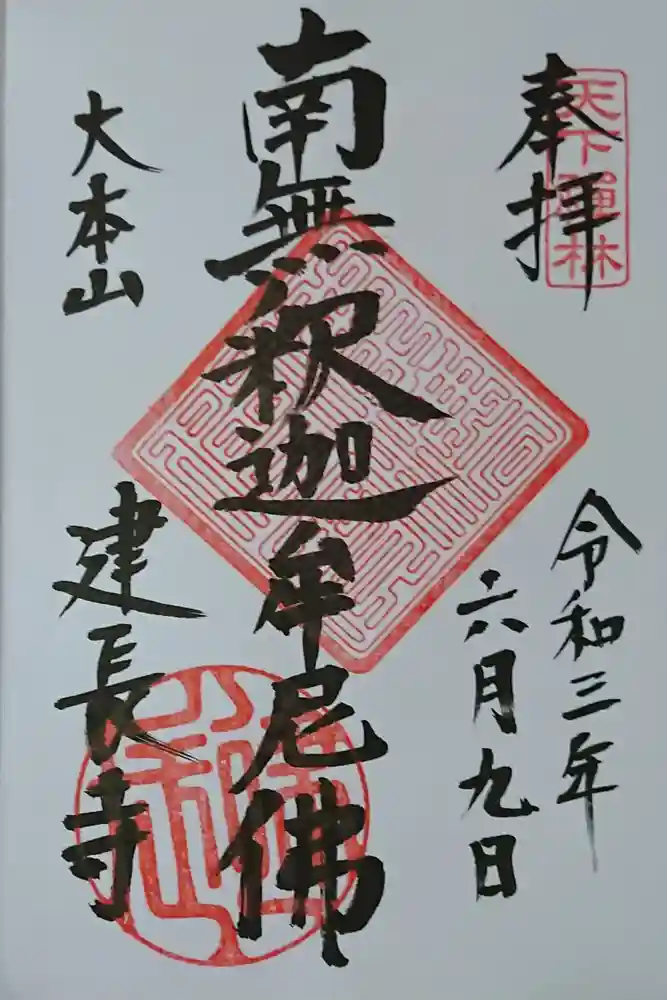 奉拝
天下禅林
令和三年
六月九日
南無釈迦牟尼佛
大本山
建長寺